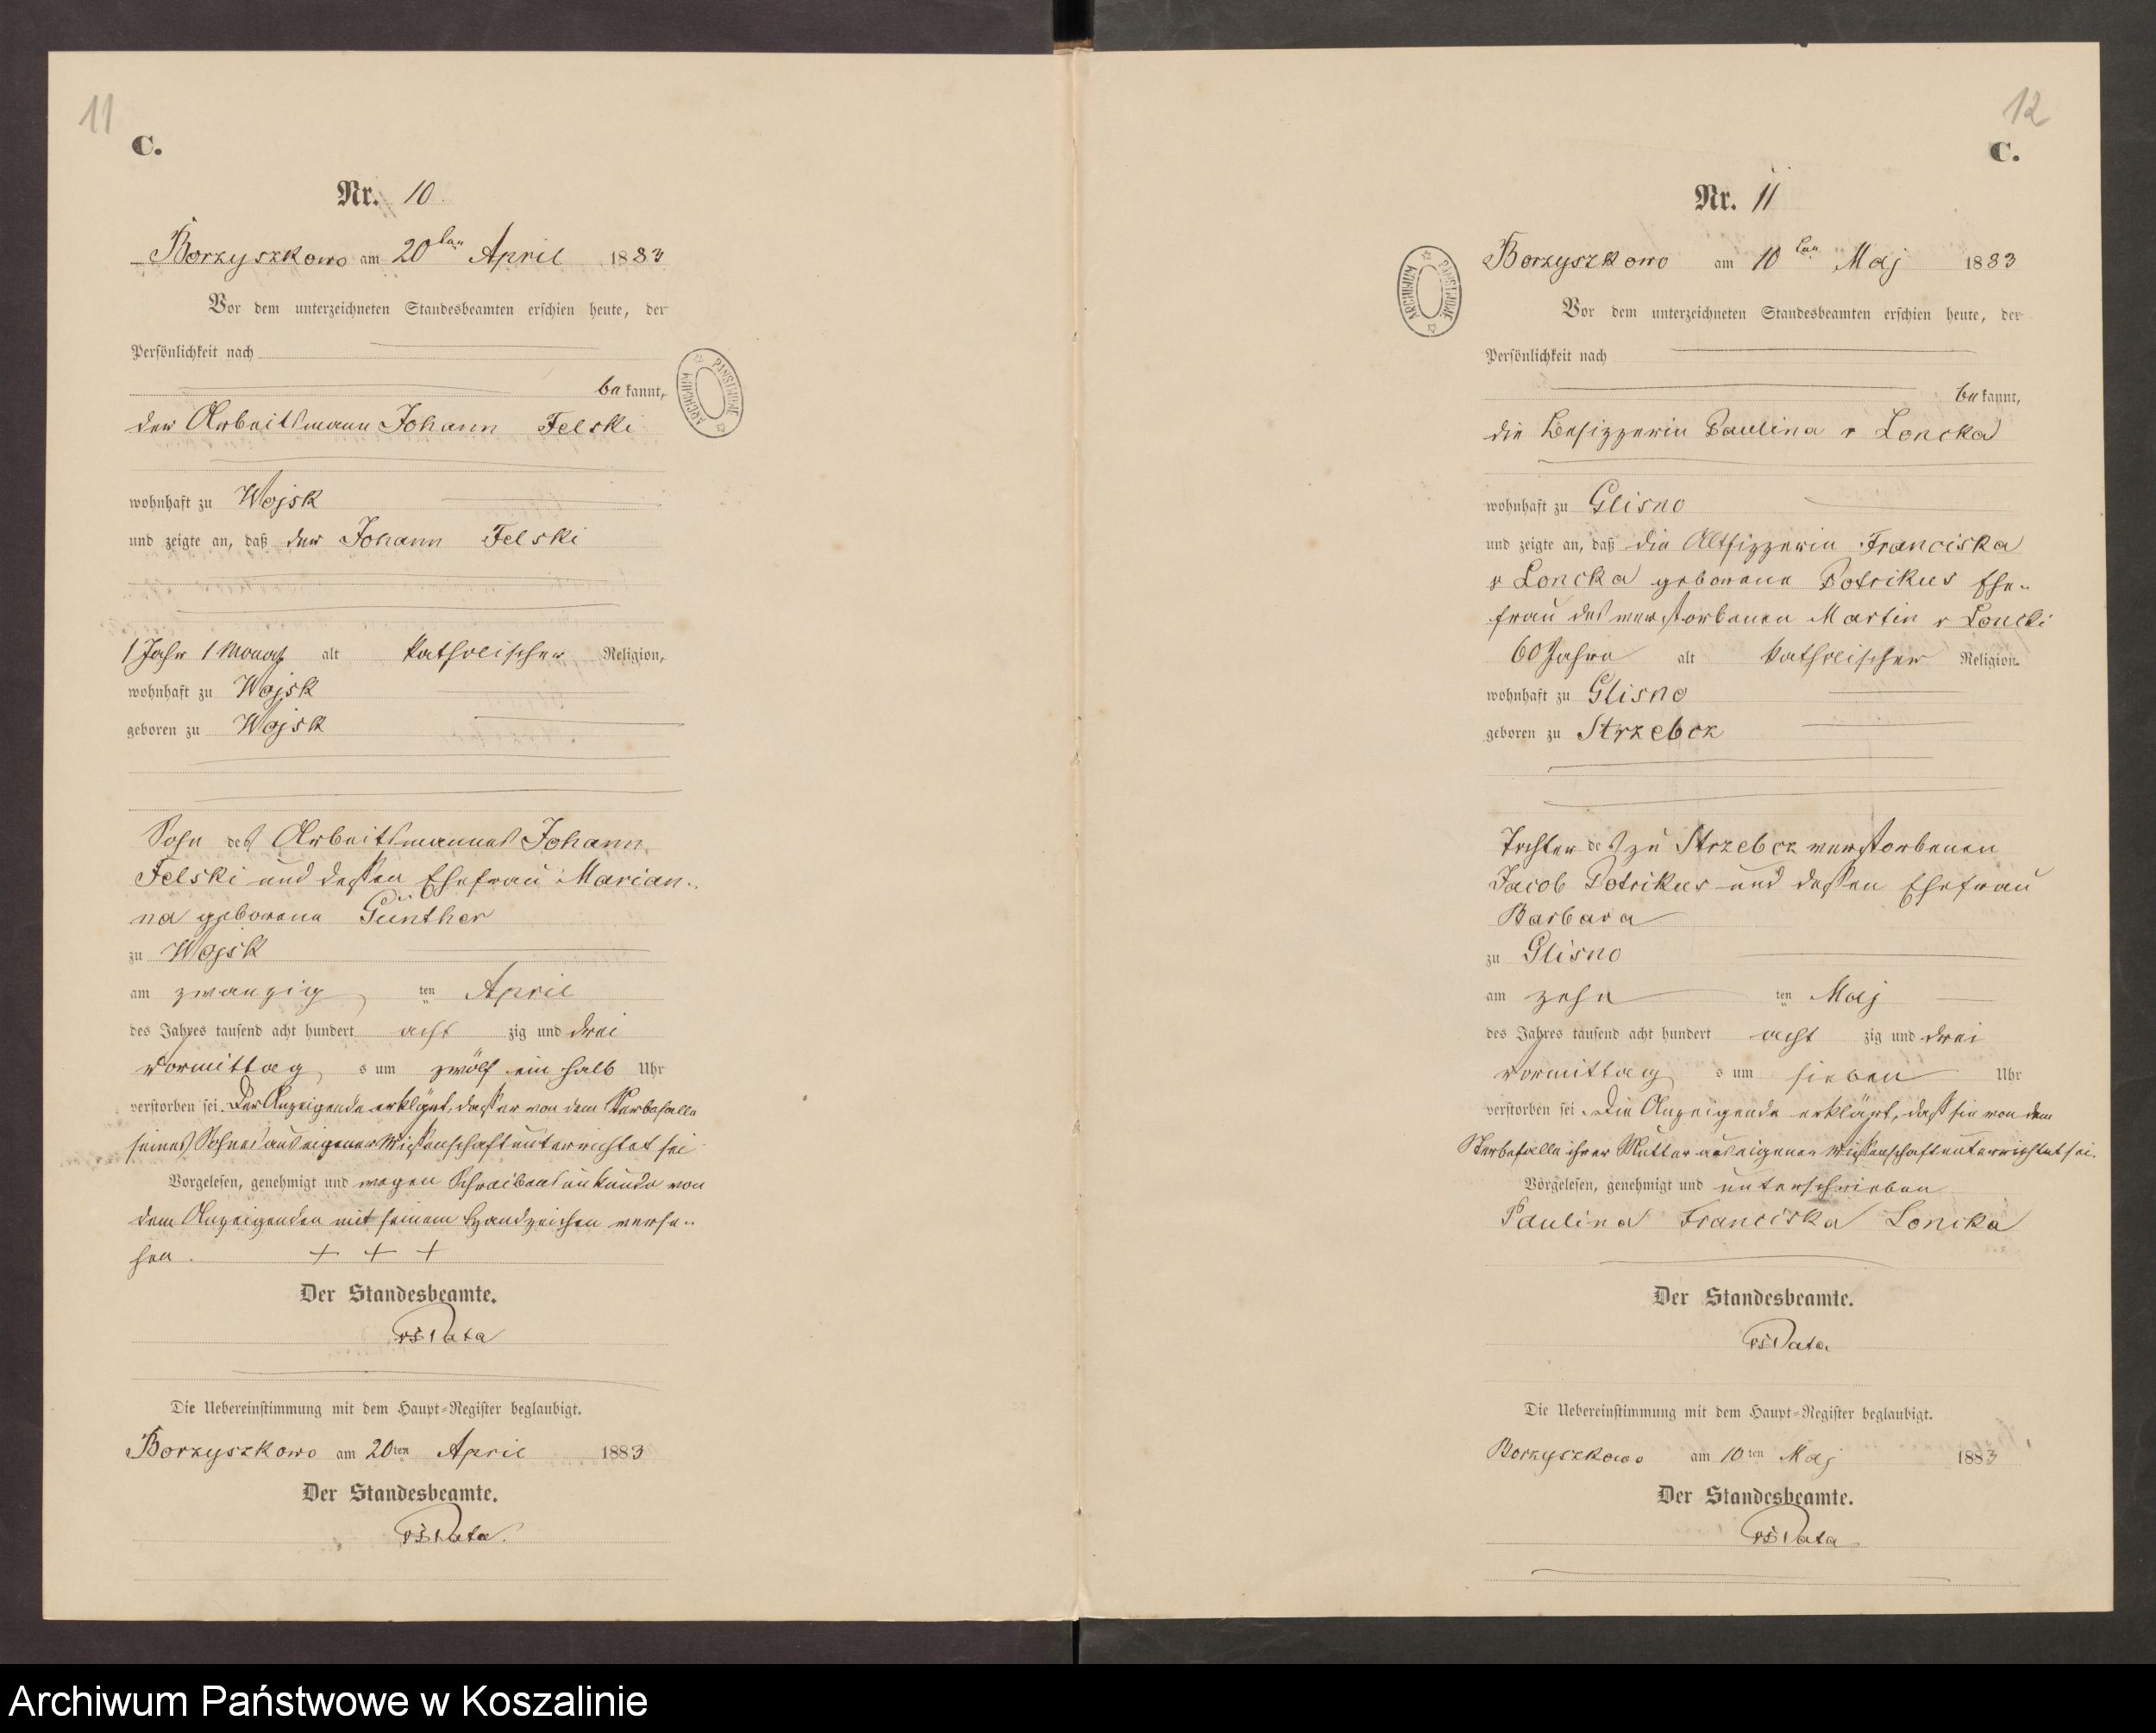 11
C.
Nr. 10.
Borzyszkowo am 20ten April 1883
Vor dem unterzeichneten Standesbeamten erschien heute, der
Persönlichkeit nach
bekannt,
der Arbeitsmann Johann Felski
wohnhaft zu Wojsk
und zeigte an, daß der Johann Felski
1 Jahr 1 Monat alt katholischer Religion,
wohnhaft zu Wojsk
geboren zu Wojsk
Sohn des Arbeitsmannes Johann
Felski und dessen Ehefrau Marian-
na geborene Günther
zu Wojsk
am zwanzig ten April
des Jahres tausend acht hundert acht zig und drei
Vormittag s um zwölf ein halb Uhr
verstorben sei. Der Anzeigende erklärt, dasser von dem Sterbefalle
seines Sohnes aus eigener Wissenschaft unterrichtet sei
Vorgelesen, genehmigt und wegen Schreibensunkunde von
dem Anzeigenden mit seinem Handzeichen verse-
hen. + + +
Der Standesbeamte.
Die Uebereinstimmung mit dem Haupt-Register beglaubigt.
Borzyszkowo am 20ten April 1883
Der Standesbeamte.
ARCHIWUM PAŃSTWOWE
12
C.
Nr. 11
Borzyszkowo am 10ten Maj 1883
Vor dem unterzeichneten Standesbeamten erschien heute, der
Persönlichkeit nach
bekannt,
die Besizzerin Paulina v Loncka
wohnhaft zu Glisno
und zeigte an, daß die Altsizzerin Franciska
v Loncka geborene Potrikus Ehe-
frau des verstorbenen Martin v Loncki
60 Jahre alt katholischer Religion
wohnhaft zu Glisno
geboren zu Strzebcz
Tochter des zu Strzebcz verstorbenen
Jacob Potrikus und dessen Ehefrau
Barbara
zu Glisno
am zehn ten Maj
des Jahres tausend acht hundert acht zig und drei
Vormittag s um sieben Uhr
verstorben sei. Die Anzeigende erklärt, daß sie von dem
Sterbefalle ihrer Mutter aus eigener Wissenschaft unterrichtet sei.
Vorgelesen, genehmigt und unterschrieben
Paulina Franciska Loncka
Der Standesbeamte.
Die Uebereinstimmung mit dem Haupt-Register beglaubigt.
Borzyszkowo am 10ten Maj 1883
Der Standesbeamte.
ARCHIWUM PAŃSTWOWE
Archiwum Państwowe w Koszalinie